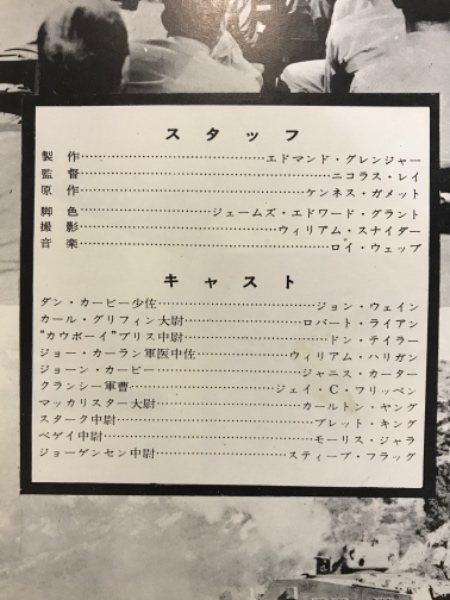 スタッフ
製作……………………エドマンド・グレンジャー
監督……………………ニコラス・レイ
原作……………………ケンネス・ガメット
脚色……………………ジェームズ・エドワード・グラント
撮影……………………ウィリアム・スナイダー
音楽……………………ロイ・ウェッブ
キャスト
ダン・カービー少佐……………………ジョン・ウェイン
カール・グリフィン大尉……………………ロバート・ライアン
“カウボーイ”ブリス中尉……………………ドン・テイラー
ジョー・カーラン軍医中佐……………………ウィリアム・ハリガン
ジョーン・カービー……………………ジャニス・カーター
クランシー軍曹……………………ジェイ・C・フリッペン
マッカリスター大尉……………………カールトン・ヤング
スターク中尉……………………ブレット・キング
ベゲイ中尉……………………モーリス・ジャラ
ジョーゲンセン中尉……………………スティーブ・フラッグ